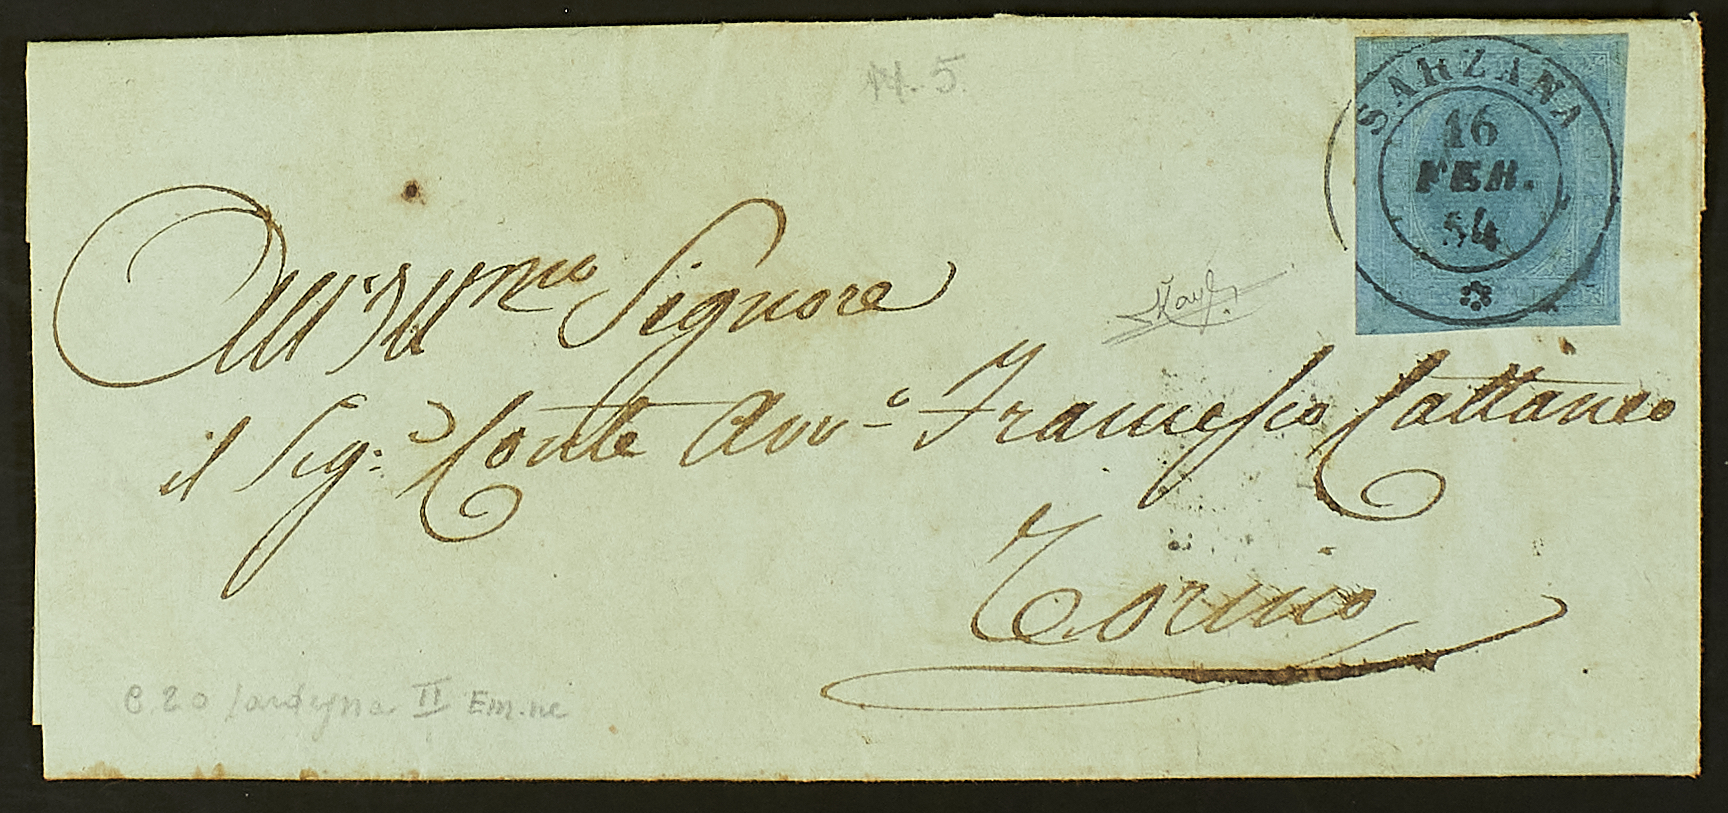 N. 5.
SARZANA
16
FEB.
54
All'Ill.mo Signore
il Sig.r Conte Avv.o Francesco Cattaneo
Torino
C. 20 Sardegna II Em.ne